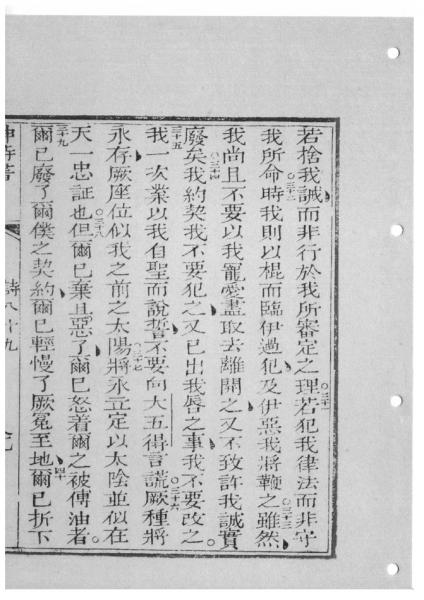 若捨我誡而非行於我所審定之理○三十一若犯我律法而非守
我所命○三十二時我則以棍而臨伊過犯及伊惡我將鞭之○三十三雖然
我尚且不要以我寵愛盡取去離開之又不致許我誠實
廢矣○三十四我約契我不要犯之又已出我唇之事我不要改之。
三十五我一次業以我自聖而說誓不要向大五得言謊○三十六厥種將
永存厥座位似我之前之太陽○三十七將永立定以太陰並似在
天一忠証也○三十八但爾已棄且惡了爾已怒着爾之被傅油者。
三十九爾已廢了爾僕之契約爾已輕慢了厥冕至地○四十爾已折下
神詩書 詩八十九